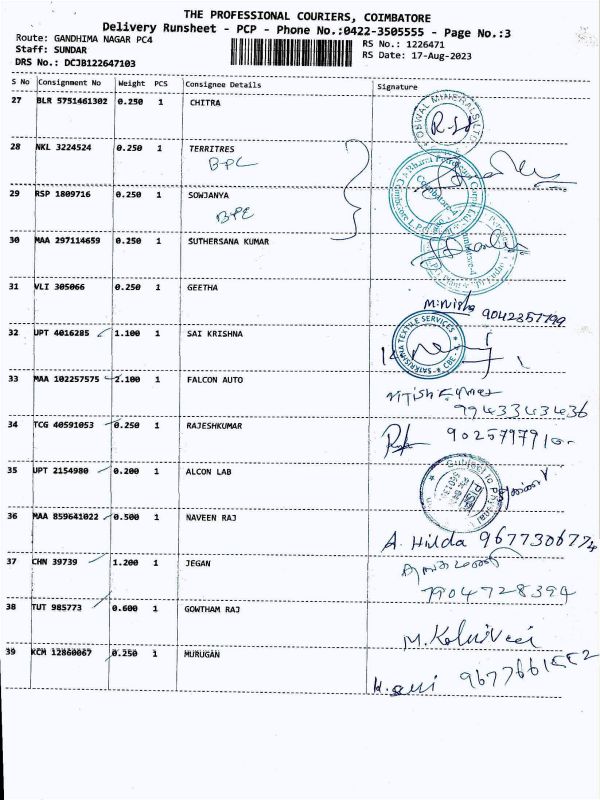 THE PROFESSIONAL COURIERS, COIMBATORE
Delivery Runsheet - PCP - Phone No.:0422-3505555 - Page No.:3
Route: GANDHIMA NAGAR PC4
RS No.: 1226471
Staff: SUNDAR
RS Date: 17-Aug-2023
DRS No.: DCJB122647103
S No Consignment No Weight PCS Consignee Details Signature
27 BLR 5751461302 0.250 1 CHITRA
28 NKL 3224524 0.250 1 TERRITRES
BPC
29 RSP 1809716 0.250 1 SOWJANYA
30 MAA 297114659 0.250 1 SUTHERSANA KUMAR
31 VLI 305066 0.250 1 GEETHA
Minisha 9042357799
32 UPT 4016285 1.100 1 SAI KRISHNA
SAI KRISHNA TEXTILE SERVICES CBE
33 MAA 102257575 2.100 1 FALCON AUTO
Nitish Kumar
9943343436
34 TCG 40591053 0.250 1 RAJESHKUMAR
35 UPT 2154980 0.200 1 ALCON LAB
Subject to
36 MAA 859641022 0.500 1 NAVEEN RAJ
A. Hilda 9677306774
37 CHN 39739 1.200 1 JEGAN
7904728394
38 TUT 985773 0.600 1 GOWTHAM RAJ
39 KCM 12860067 0.250 1 MURUGAN